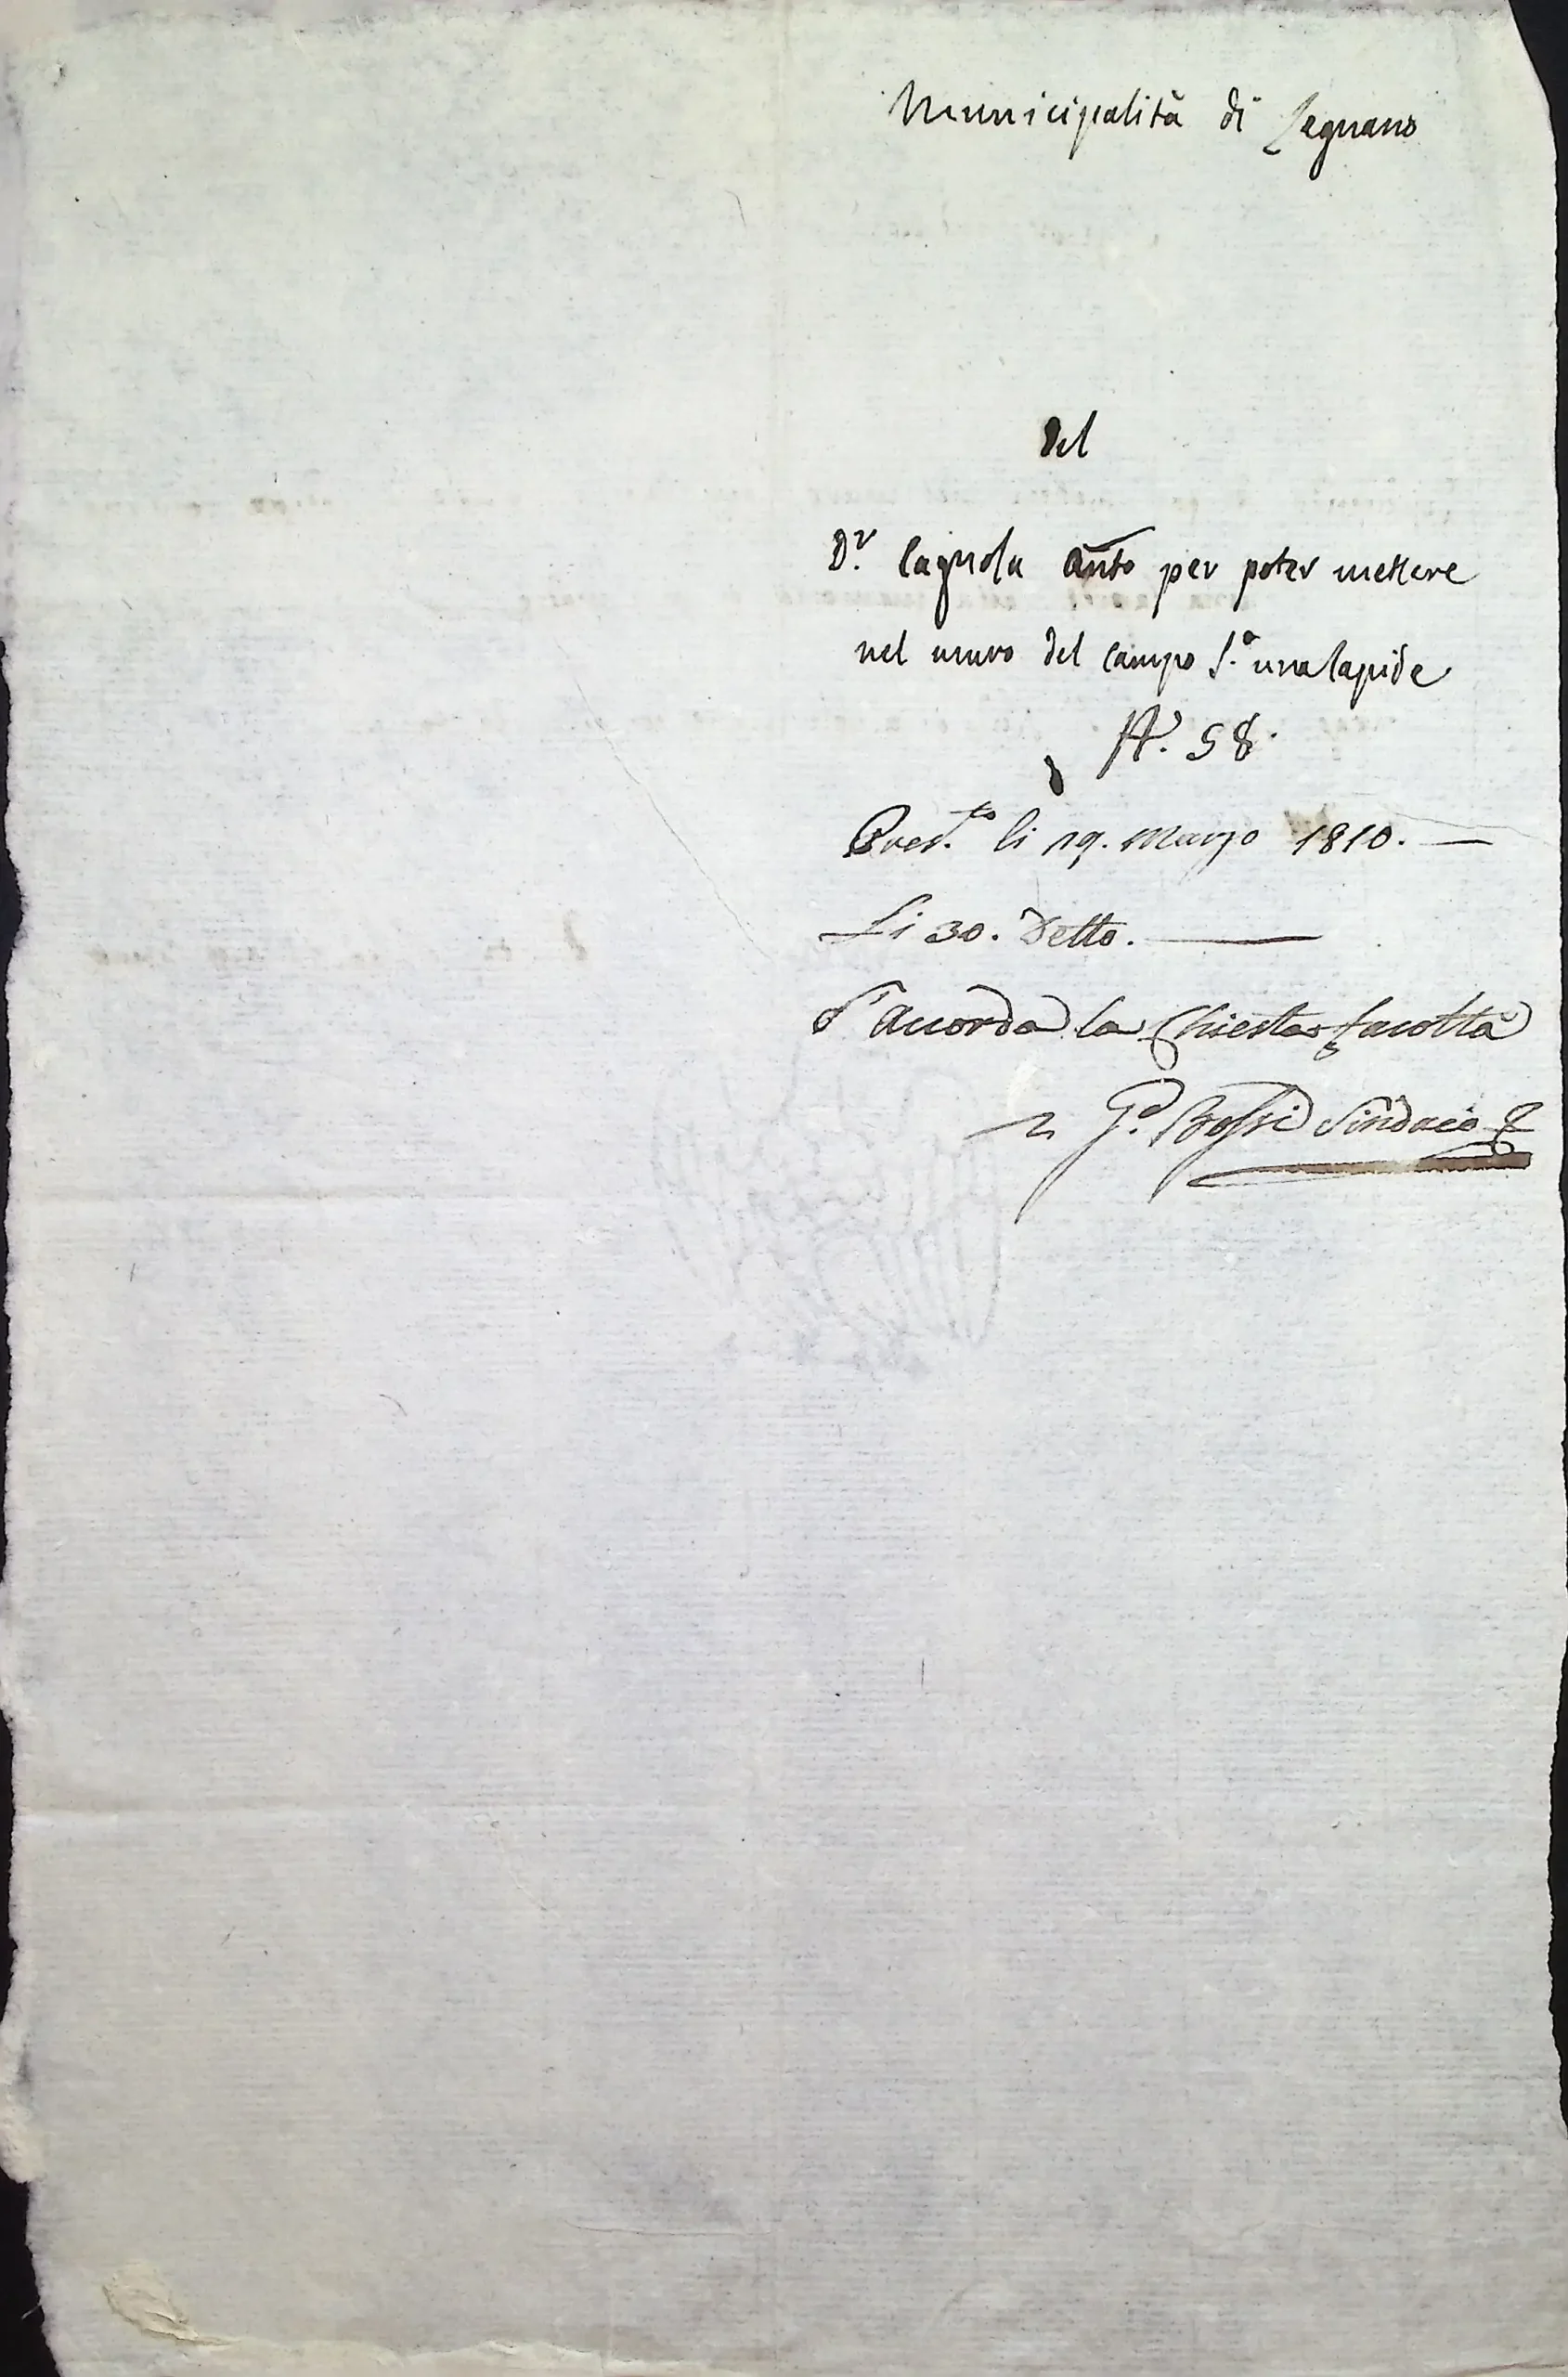 Municipalità di Legnano
Del
D.r Cagnola Anto per poter mettere
nel muro del campo S.o una lapide
N. 58.
Pres.to li 19. Marzo 1810. —
Li 30. Detto. —
S'accorda la Chiesta facoltà
G.o Bossi Sindaco